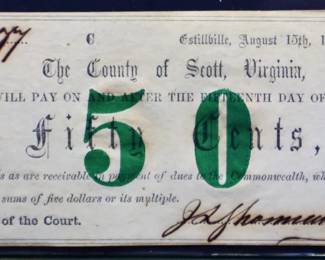 C Estillville, August 15th, 1
The County of Scott, Virginia,
WILL PAY ON AND AFTER THE FIFTEENTH DAY OF
Fifty Cents,
50
s as are receivable in payment of dues to the Commonwealth, wh
sums of five dollars or its multiple.
of the Court.